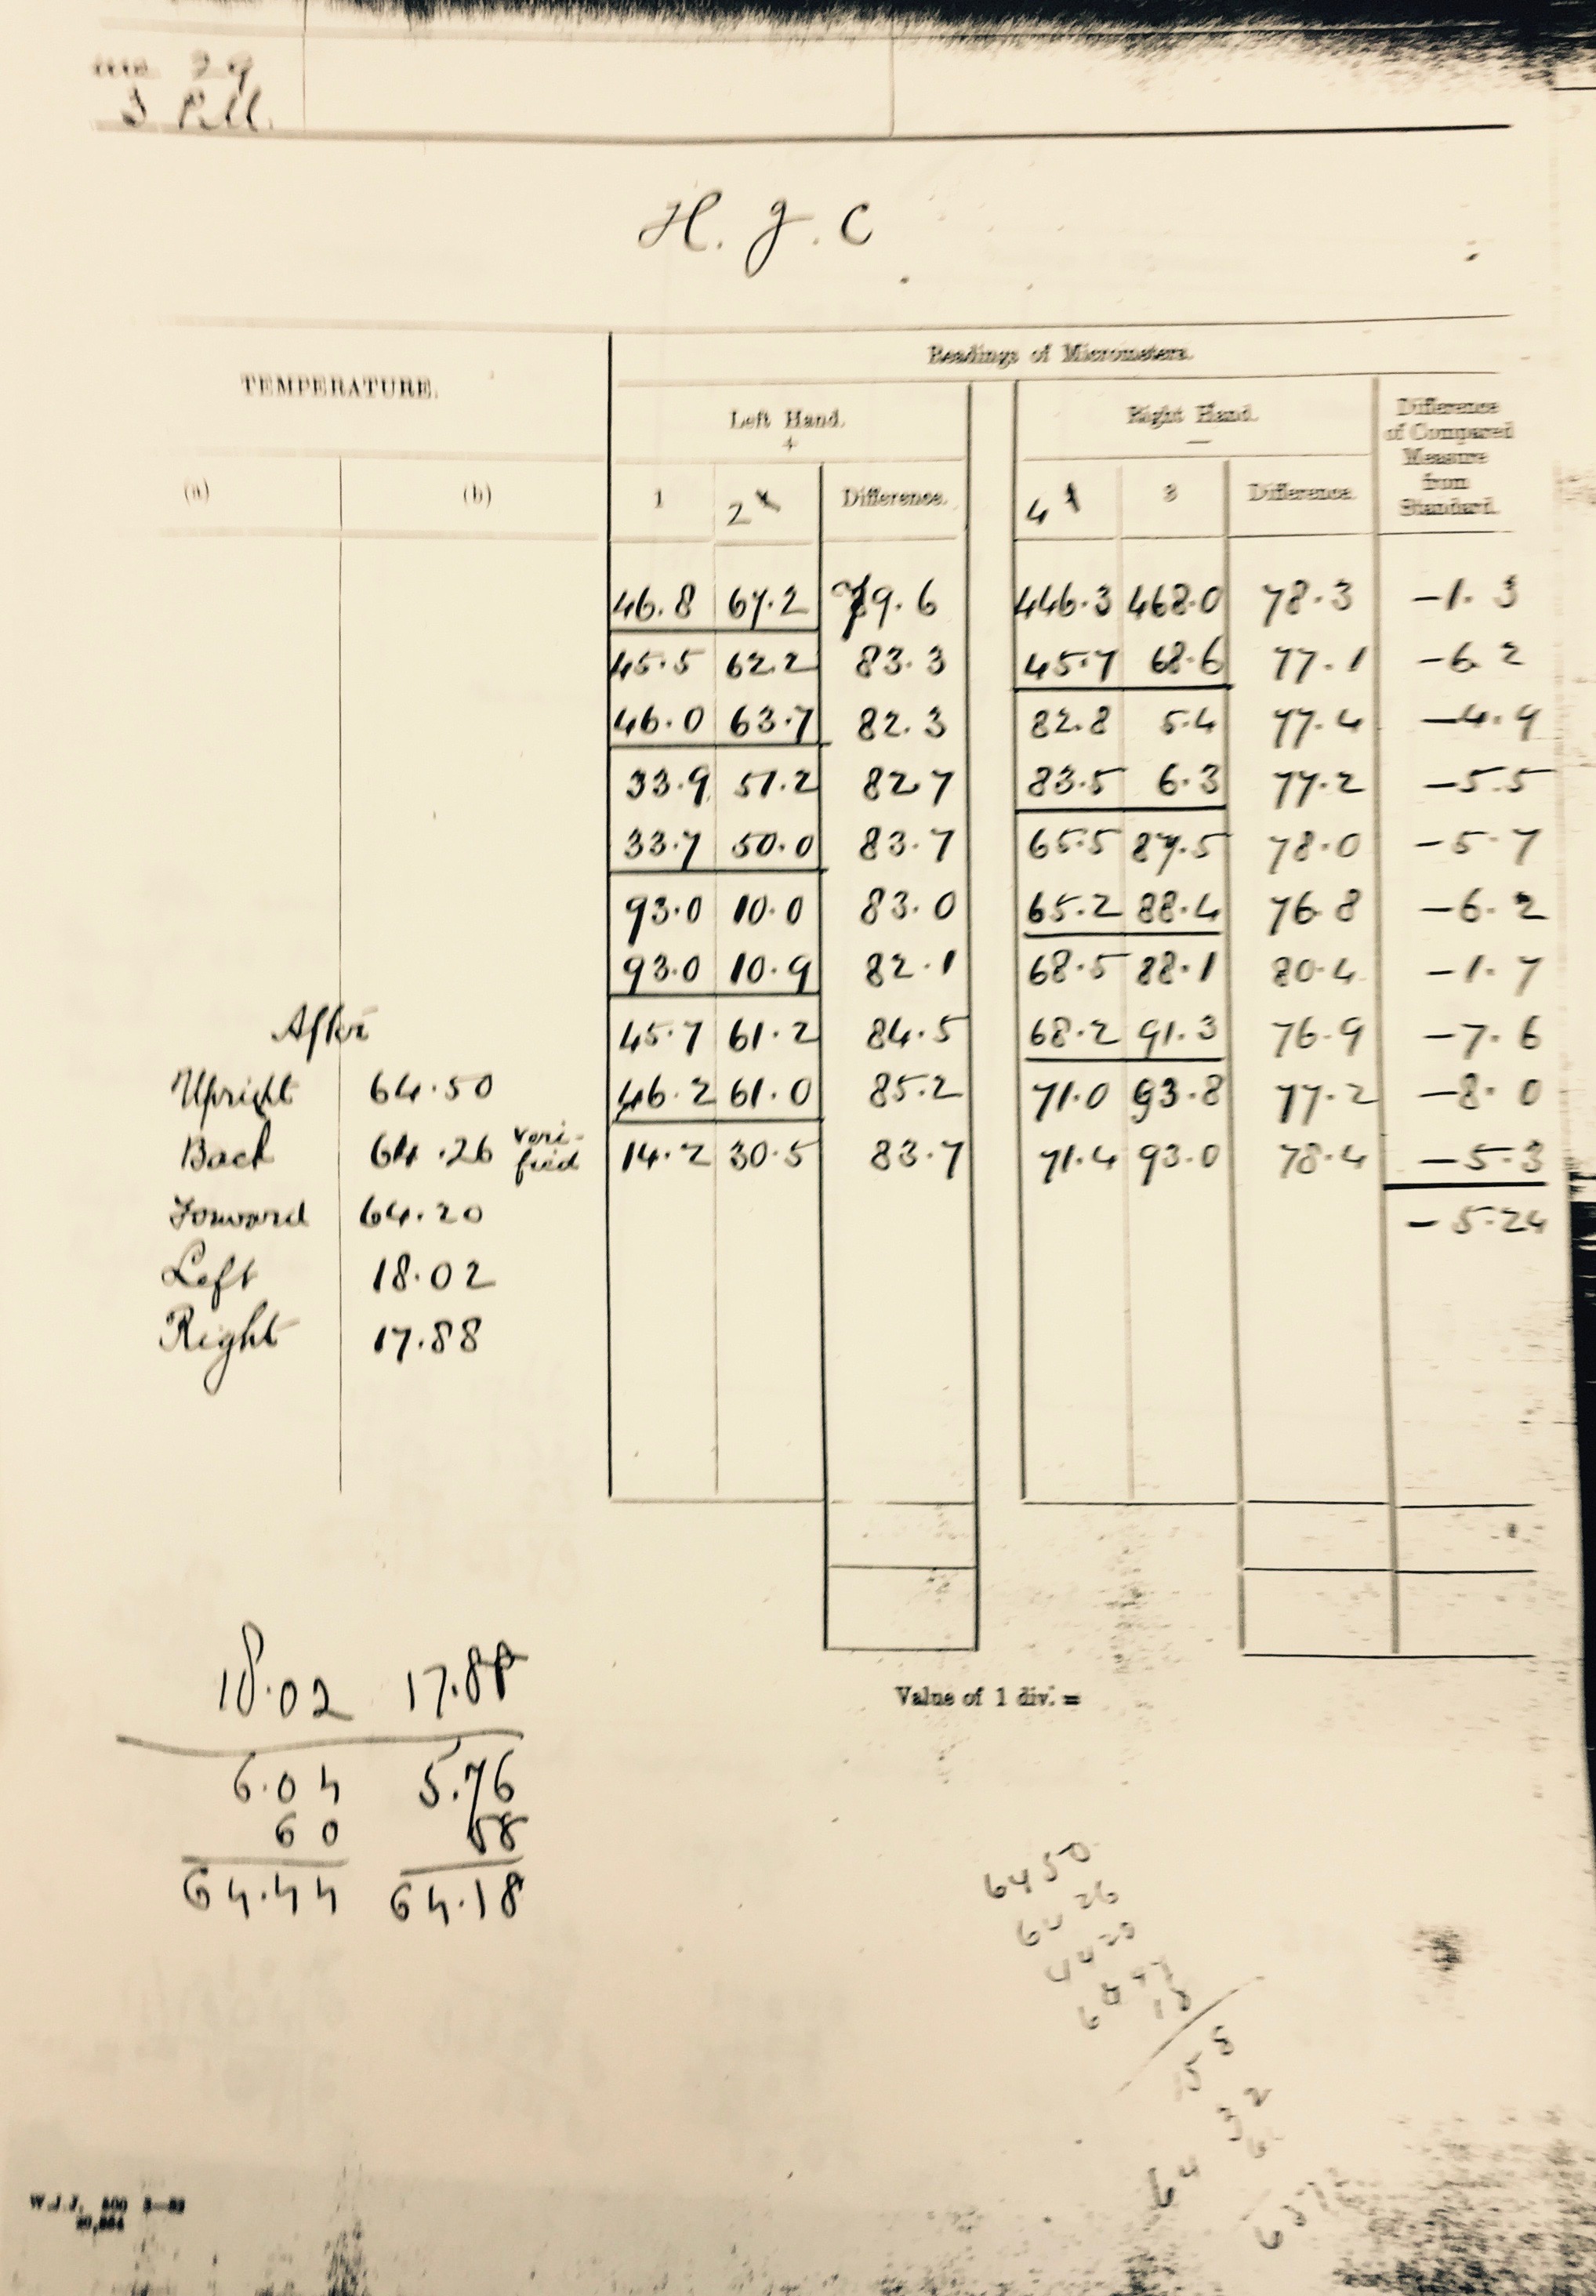 29
P.M.
H. J. C
Readings of Micrometers.
TEMPERATURE.
Left Hand.
+
Right Hand.
—
Difference
of Compared
Measure
from
Standard.
(a) (b) 1 2 Difference. 4 3 Difference.
46.8 67.2 79.6 446.3 468.0 78.3 -1.3
45.5 62.2 83.3 45.7 68.6 77.1 -6.2
46.0 63.7 82.3 82.8 5.4 77.4 -4.9
33.9 51.2 82.7 83.5 6.3 77.2 -5.5
33.7 50.0 83.7 65.5 87.5 78.0 -5.7
93.0 10.0 83.0 65.2 88.4 76.8 -6.2
93.0 10.9 82.1 68.5 88.1 80.4 -1.7
After 45.7 61.2 84.5 68.2 91.3 76.9 -7.6
Upright 64.50 46.2 61.0 85.2 71.0 93.8 77.2 -8.0
Back 64.26 veri-fied 14.2 30.5 83.7 71.4 93.0 78.4 -5.3
Forward 64.20 -5.24
Left 18.02
Right 17.88
Value of 1 div. =
18.02 17.88
6.04 5.76
60 58
64.44 64.18
64 50
26
18
158
32
64
W.J.J. 500